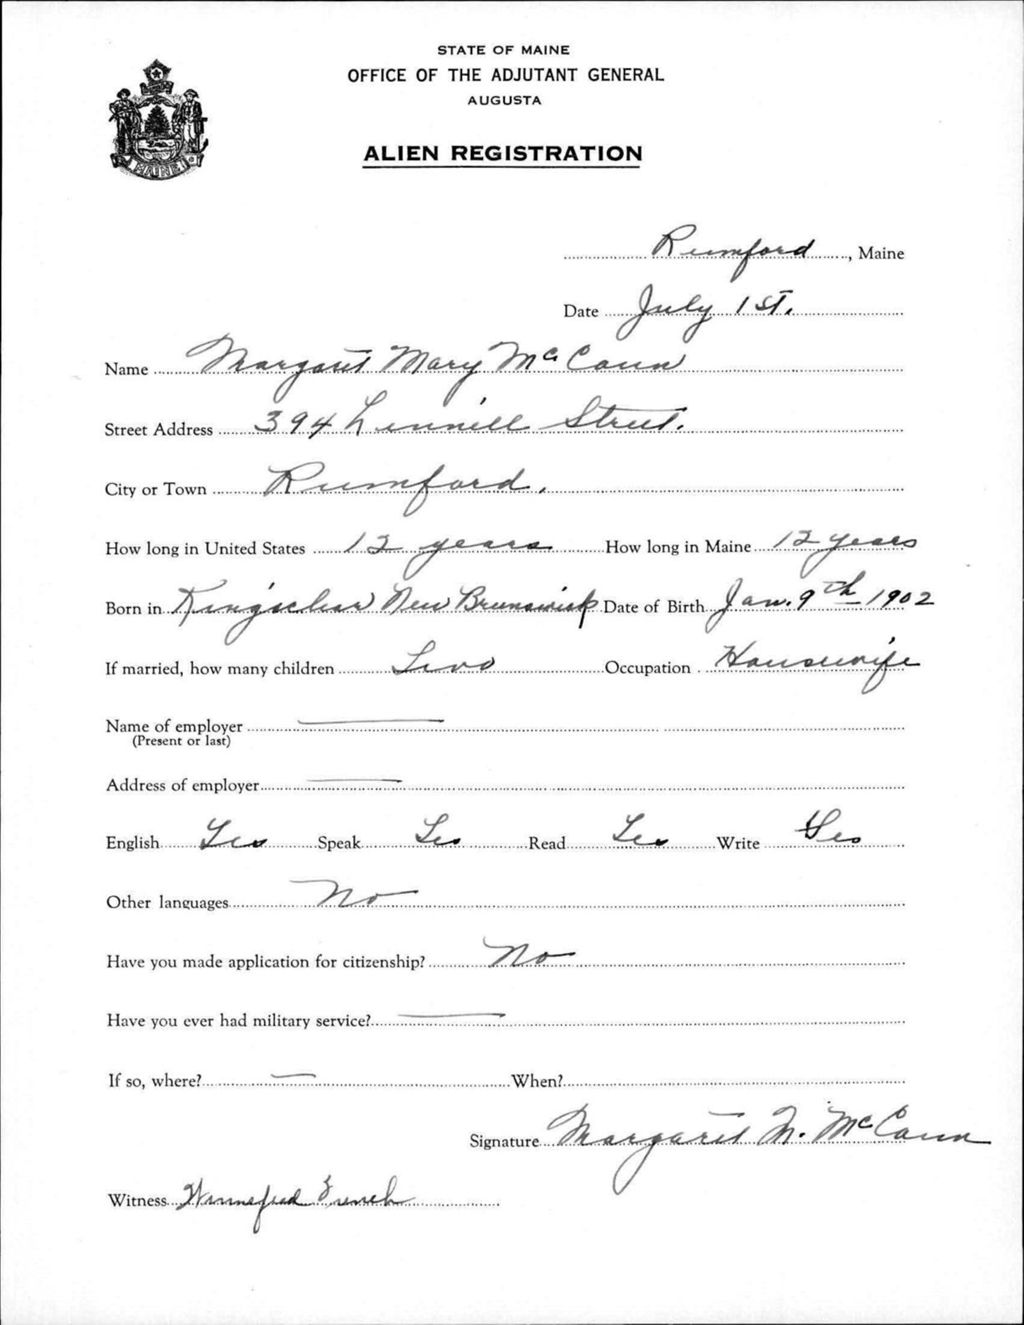 STATE OF MAINE
OFFICE OF THE ADJUTANT GENERAL
AUGUSTA
ALIEN REGISTRATION
MAINE
Rumford, Maine
Date July 1st.
Name Margaret Mary McCann
Street Address 394 Linnell Street.
City or Town Rumford.
How long in United States 12 years How long in Maine 12 years
Born in Kingsclear New Brunswick Date of Birth Jan. 9th 1902
If married, how many children Two Occupation Housewife
Name of employer
(Present or last)
Address of employer
English Yes Speak Yes Read Yes Write Yes
Other languages No
Have you made application for citizenship? No
Have you ever had military service?
If so, where? When?
Signature Margaret M. McCann
Witness Winnefred French